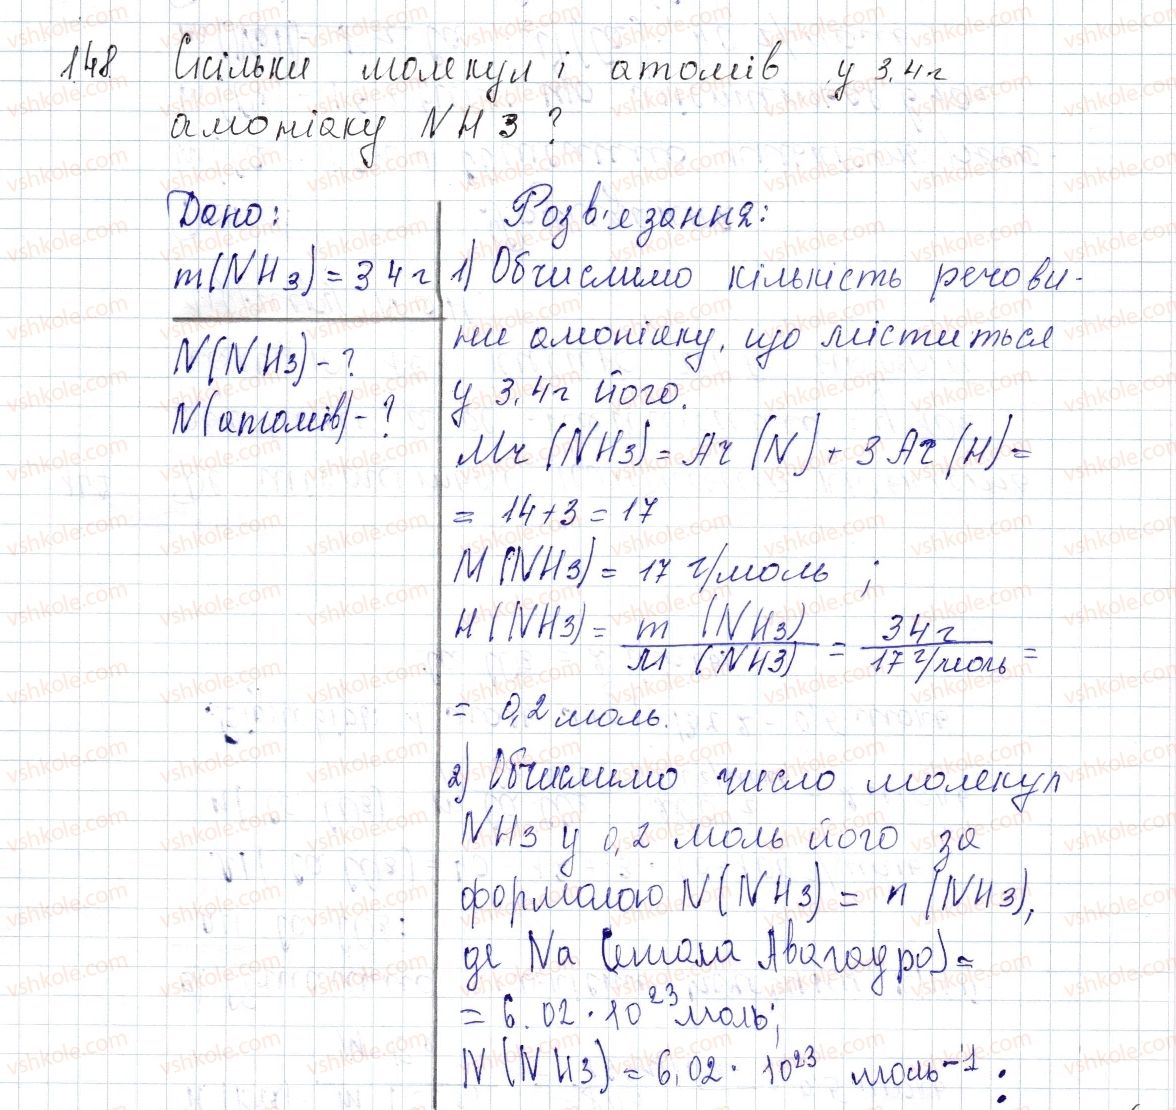 148 Скільки молекул і атомів у 3,4г
амоніаку NH3 ?
Дано:
m(NH3) = 34г
N(NH3) - ?
N(атомів) - ?
Розв'язання:
1) Обчислимо кількість речови-
ни амоніаку, що міститься
у 3,4г його.
Mr (NH3) = Ar (N) + 3 Ar (H) =
= 14+3 = 17
M (NH3) = 17 г/моль ;
H (NH3) = m (NH3) / M (NH3) = 34г / 17г/моль =
= 0,2 моль.
2) Обчислимо число молекул
NH3 у 0,2 моль його за
формолою N(NH3) = n (NH3),
де Na (стала Авагадро) =
= 6.02 · 10²³ моль;
N(NH3) = 6,02 · 10²³ моль⁻¹ :